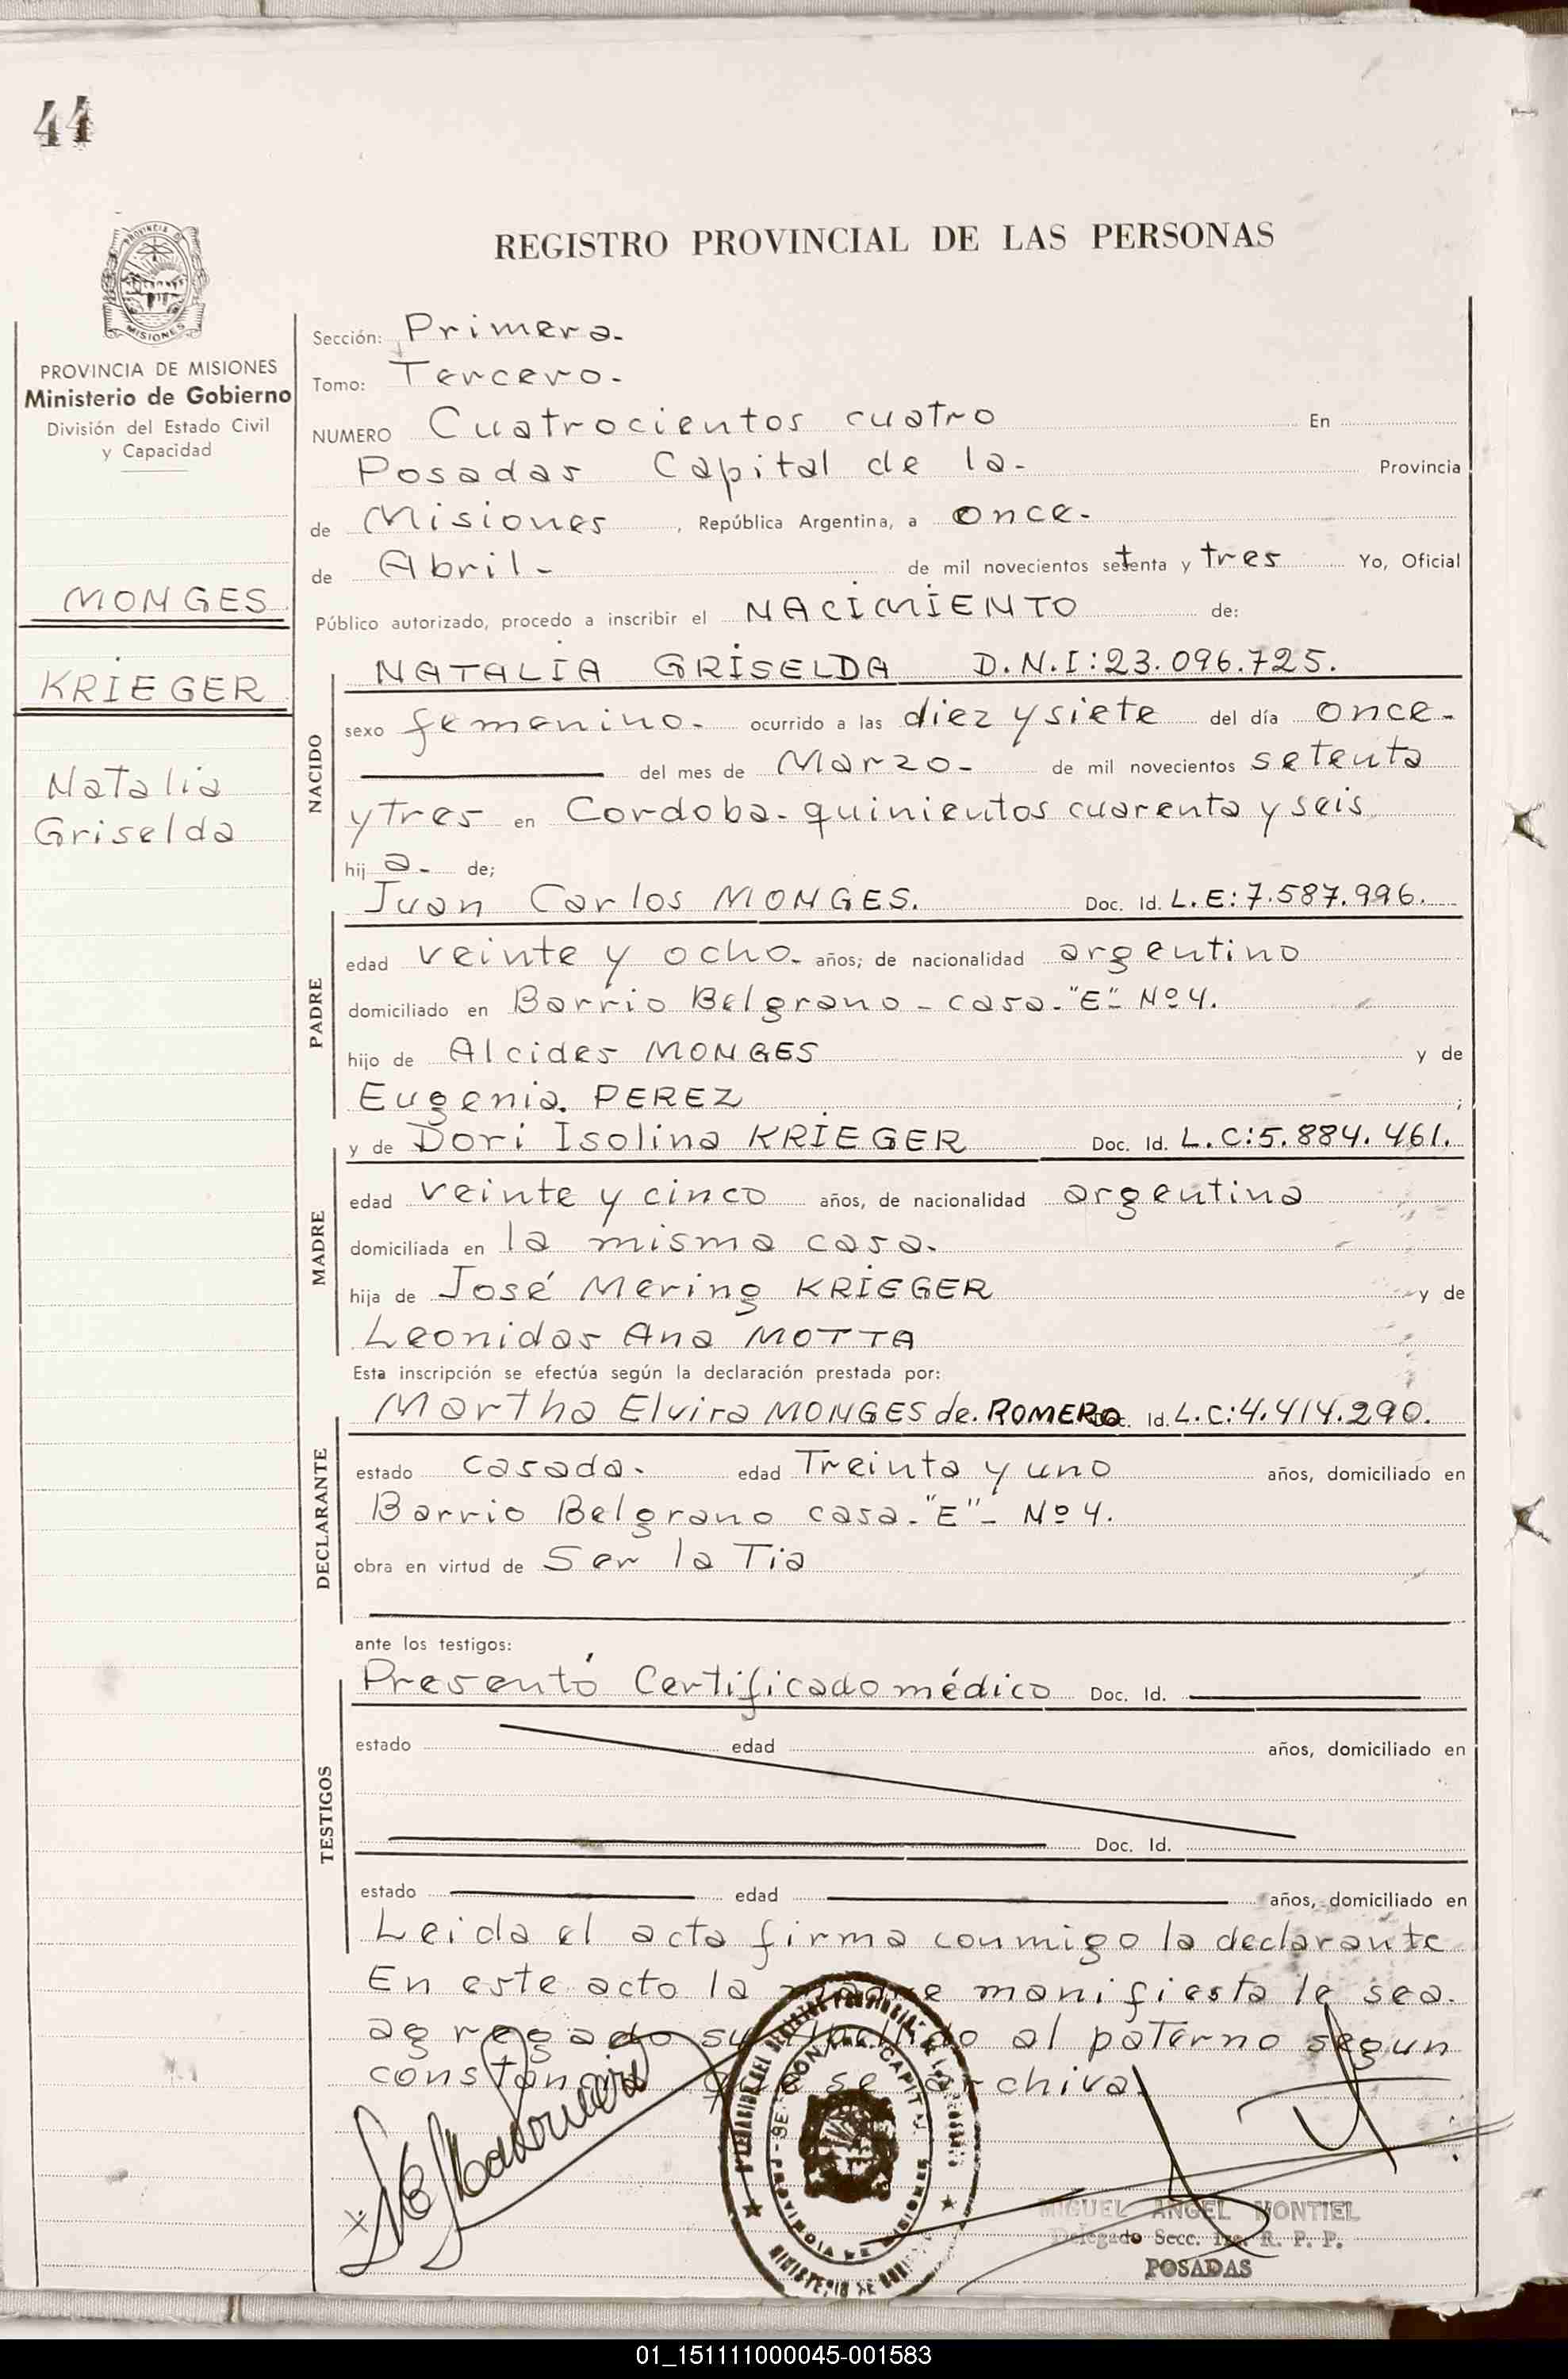 44
REGISTRO PROVINCIAL DE LAS PERSONAS
PROVINCIA DE MISIONES
Ministerio de Gobierno
División del Estado Civil
y Capacidad
MONGES
KRIEGER
Natalia
Griselda
Sección: Primera.
Tomo: Tercero.
NUMERO Cuatrocientos cuatro En
Posadas Capital de la- Provincia
de Misiones, República Argentina, a once-
de Abril- de mil novecientos setenta y tres Yo, Oficial
Público autorizado, procedo a inscribir el NACIMIENTO de:
NACIDO
NATALIA GRISELDA D.N.I:23.096.725.
sexo femenino- ocurrido a las diez y siete del día once-
del mes de Marzo- de mil novecientos setenta
y tres en Cordoba-quinientos cuarenta y seis
hij a- de;
PADRE
Juan Carlos MONGES. Doc. Id. L.E:7.587.996.
edad veinte y ocho- años; de nacionalidad argentino
domiciliado en Barrio Belgrano-casa-"E" Nº4.
hijo de Alcides MONGES y de
Eugenia. PEREZ ;
MADRE
y de Dori Isolina KRIEGER Doc. Id. L.C:5.884.461.
edad veinte y cinco años, de nacionalidad argentina
domiciliada en la misma casa.
hija de José Mering KRIEGER y de
Leonidas Ana MOTTA
Esta inscripción se efectúa según la declaración prestada por:
DECLARANTE
Martha Elvira MONGES de. ROMERO Doc. Id. L.C:4.414.290.
estado casada- edad Treinta y uno años, domiciliado en
Barrio Belgrano casa-"E"- Nº4.
obra en virtud de Ser la Tia
ante los testigos:
TESTIGOS
Presentó Certificado médico Doc. Id.
estado edad años, domiciliado en
Doc. Id.
estado edad años, domiciliado en
Leida el acta firma conmigo la declarante
En este acto la madre manifiesta le sea
agregado su apellido al paterno segun
constancia que se archiva.
MIGUEL ANGEL MONTIEL
Delegado Secc. 1ra. R. P. P.
POSADAS
01_151111000045-001583